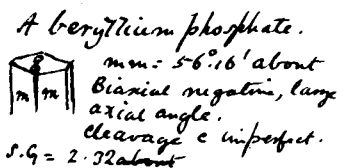 A beryllium phosphate.
mm = 56°.16' about
Biaxial negative, large
axial angle.
m m
Cleavage c imperfect.
S.G = 2.32 about